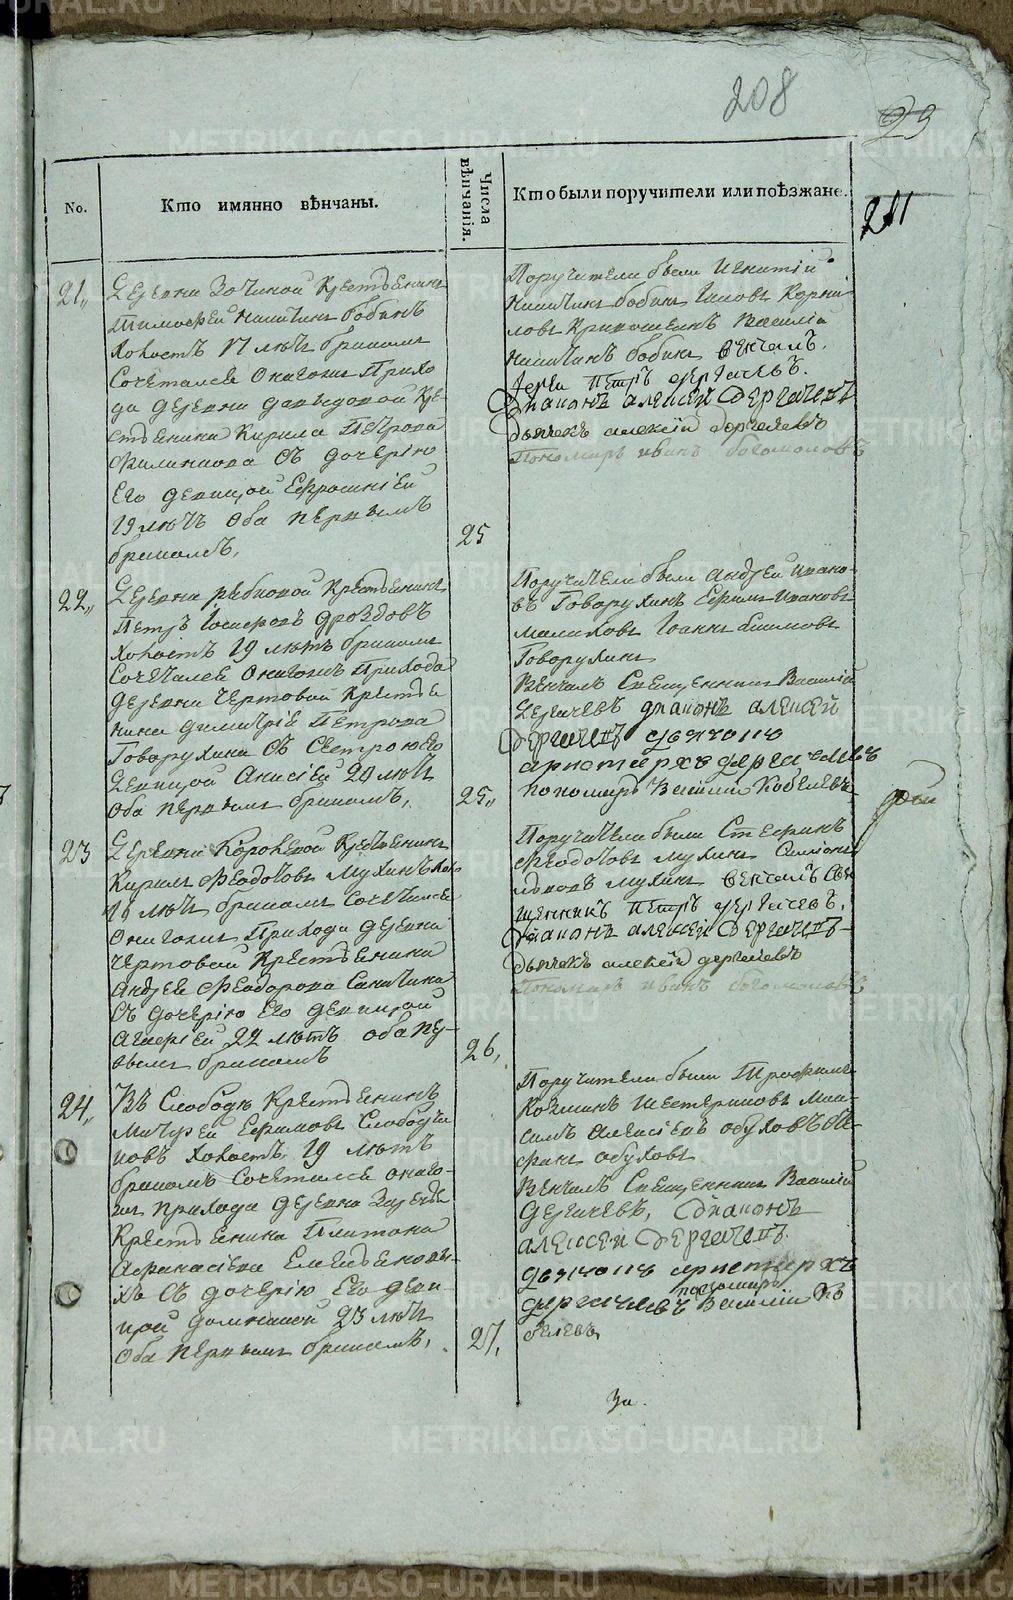 208
23
211
No.
Кто имянно вѣнчаны.
Числа вѣнчанія.
Кто были поручители или поѣзжане.
21,,
Деревни Зочиной Крестьянинъ
Тимофей Никитин бобинъ
холостъ 17 лѣтъ бракомъ
сочетался онагожъ Прихо
да деревни давыдовой Кре
стьянина Кирила Петрова
Филипова съ дочерїю
его девицой Ефросинїей
19 лѣтъ оба первымъ
бракомъ,
25
Поручители были Игнатїй
Никитин бобин Иаковъ Корни
ловъ Кривошеинъ Василїй
Никитинъ бобин венчалъ.
Іерей Петръ дергачевъ.
Диаконъ алексей Дергачевъ
дьячекъ алексїй дергачевъ
Пономарь иванъ богомоловъ
22,,
Деревни рѣбковой Крестьянинъ
Петръ Іосифовъ дроздовъ
холостъ 19 лѣтъ бракомъ
сочетался онагожъ Прихода
деревни Чертовой Крестья
нина димитрїя Петрова
Говорухина съ сестрою его
девицой Анисїей 20 лѣтъ
оба первымъ бракомъ,
25,,
Поручители были андрей ивано-
въ Говорухинъ Ефимъ ивановъ
малаховъ Іоаннъ
Говорухинъ
Венчалъ Священникъ Василїй
Дергачевъ диаконъ алексей
Дергачевъ дьячокъ
аристархъ дергачевъ
пономарь Василїй Кобелевъ
23
Деревни Коровкой Крестьянинъ
Кирилъ Феодотовъ Мухинъ холо
19 лѣтъ бракомъ сочетался
онагожъ Прихода деревни
Чертовой Крестьянина
андрея Феодорова
съ дочерїю его девицой
22 лѣтъ оба пер-
вымъ бракомъ
26,
Поручители были Стефанъ
Феодотовъ мухинъ
мухинъ венчалъ свя
щенникъ Петръ дергачевъ,
Диаконъ алексей Дергачевъ
дьячекъ алексїй дергачевъ
Пономарь иванъ богомоловъ
24,,
Въ Слободѣ Крестьянинъ
Матфей Ефимовъ Слободчи
ковъ холостъ 19 лѣтъ
бракомъ сочетался онаго-
жъ прихода деревни
Крестьянина Платона
Афанасїева
хъ съ дочерїю его деви-
цой домникой 23 лѣтъ
оба первымъ бракомъ,
27,
Поручители были Трофимъ
Козминъ Шестериковъ Мак-
симъ Алексїевъ обуховъ
обуховъ
Венчалъ Священникъ Василїй
Дергачевъ, Диаконъ
алексей Дергачевъ.
дьячокъ аристархъ
пономарь
дергачевъ Василїй Ко
белевъ
За.